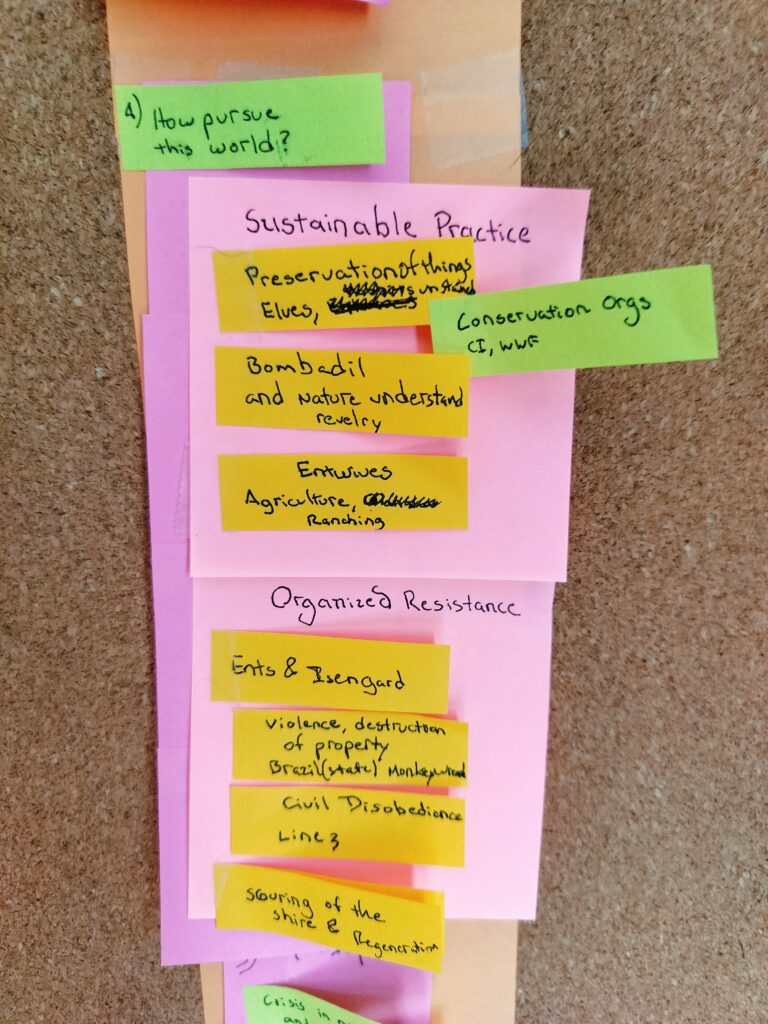 4) How pursue
this world?
Sustainable Practice
Preservation of things
Elves,
Conservation Orgs
CI, WWF
Bombadil
and Nature understand
revelry
Entwives
Agriculture,
Ranching
Organized Resistance
Ents & Isengard
Violence, destruction
of property
Brazil (state)
Civil Disobedience
Line 3
Scouring of the
Shire & Regeneration
Crisis in
and